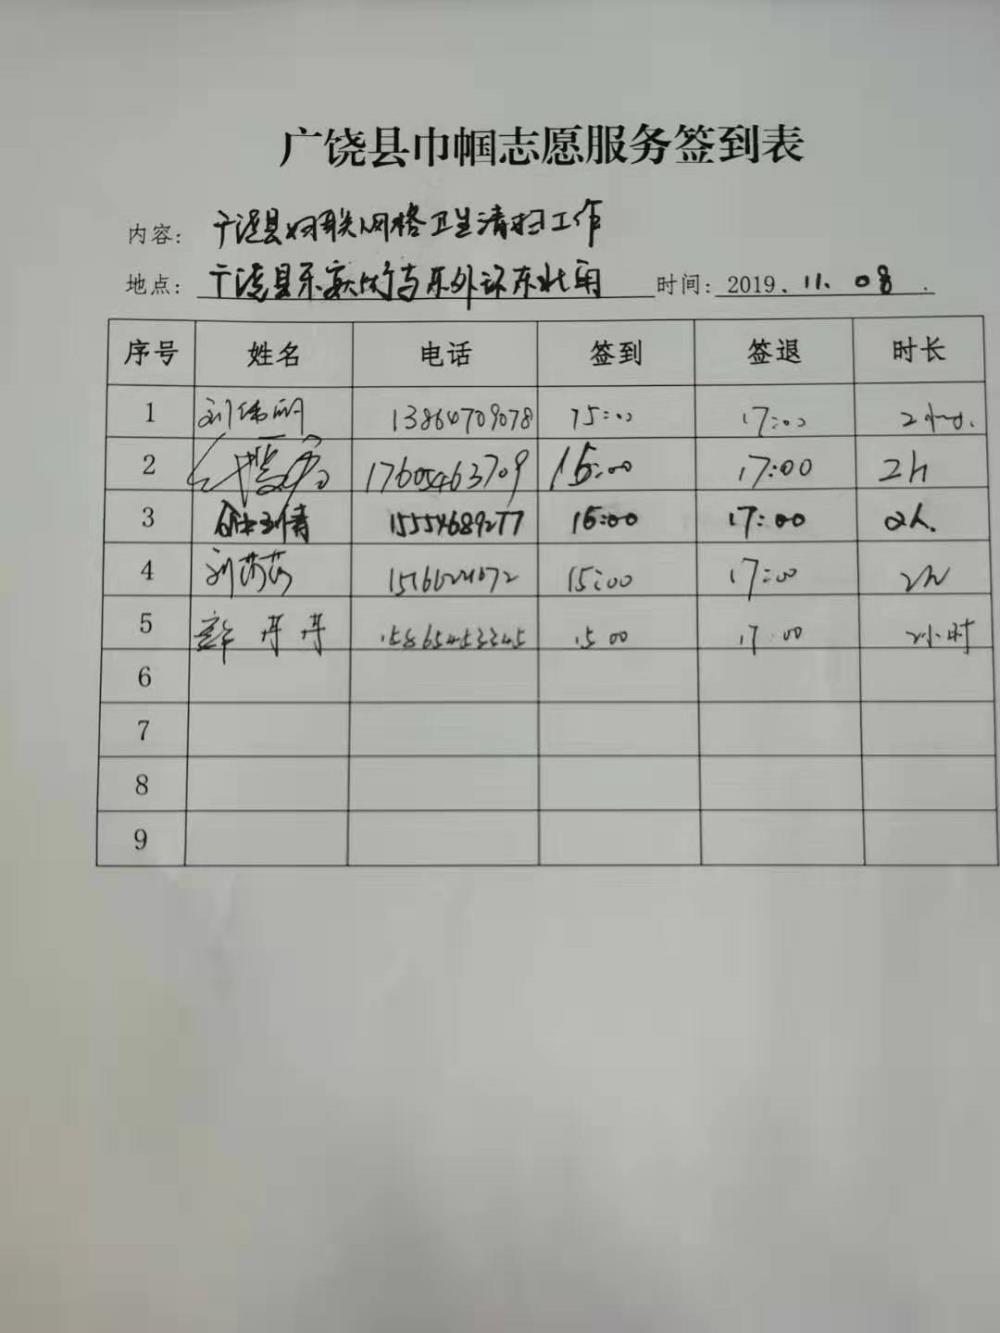 广饶县巾帼志愿服务签到表
内容: 广饶县妇联网格卫生清扫工作
地点: 广饶县乐安街与东外环东北角 时间: 2019.11.08.
序号 姓名 电话 签到 签退 时长
1 刘伟明 13864709078 15:00 17:00 2小时.
2 17605463709 15:00 17:00 2h
3 15554689277 15:00 17:00 2h.
4 刘莎莎 15:00 17:00 2h
5 丹丹 15865453345 15 00 17 00 2小时
6
7
8
9